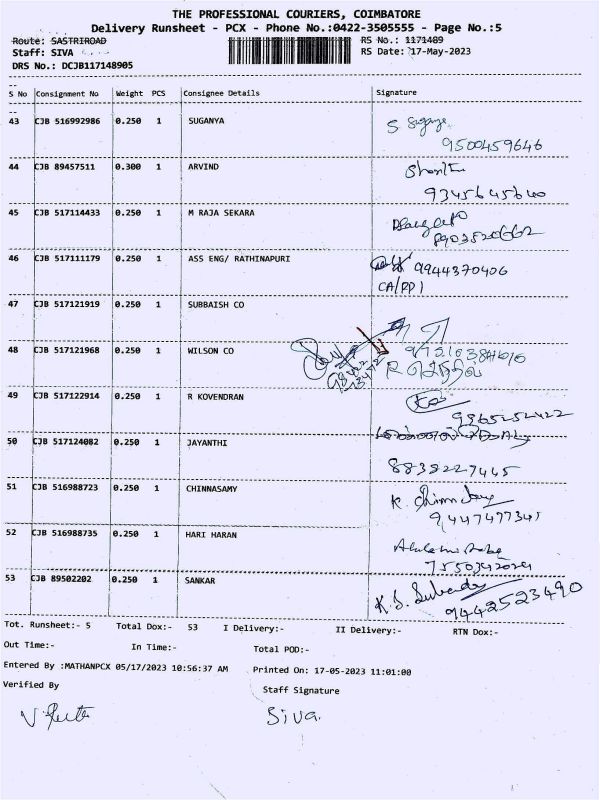 THE PROFESSIONAL COURIERS, COIMBATORE
Delivery Runsheet - PCX - Phone No.:0422-3505555 - Page No.:5
Route: SASTRIROAD
RS No.: 1171489
Staff: SIVA
RS Date: 17-May-2023
DRS No.: DCJB117148905
S No Consignment No Weight PCS Consignee Details Signature
43 CJB 516992986 0.250 1 SUGANYA S. Suganya
9500459646
44 CJB 89457511 0.300 1 ARVIND
9345645640
45 CJB 517114433 0.250 1 M RAJA SEKARA
8903520662
46 CJB 517111179 0.250 1 ASS ENG/ RATHINAPURI 9944370406
47 CJB 517121919 0.250 1 SUBBAISH CO
48 CJB 517121968 0.250 1 WILSON CO
R செந்தில்
49 CJB 517122914 0.250 1 R KOVENDRAN
9965252422
50 CJB 517124082 0.250 1 JAYANTHI
8838227465
51 CJB 516988723 0.250 1 CHINNASAMY K. Chinnasamy
9447477341
52 CJB 516988735 0.250 1 HARI HARAN
53 CJB 89502202 0.250 1 SANKAR K.S.
9442523490
Tot. Runsheet:- 5 Total Dox:- 53 I Delivery:- II Delivery:- RTN Dox:-
Out Time:- In Time:- Total POD:-
Entered By :MATHANPCX 05/17/2023 10:56:37 AM Printed On: 17-05-2023 11:01:00
Verified By Staff Signature
Siva.